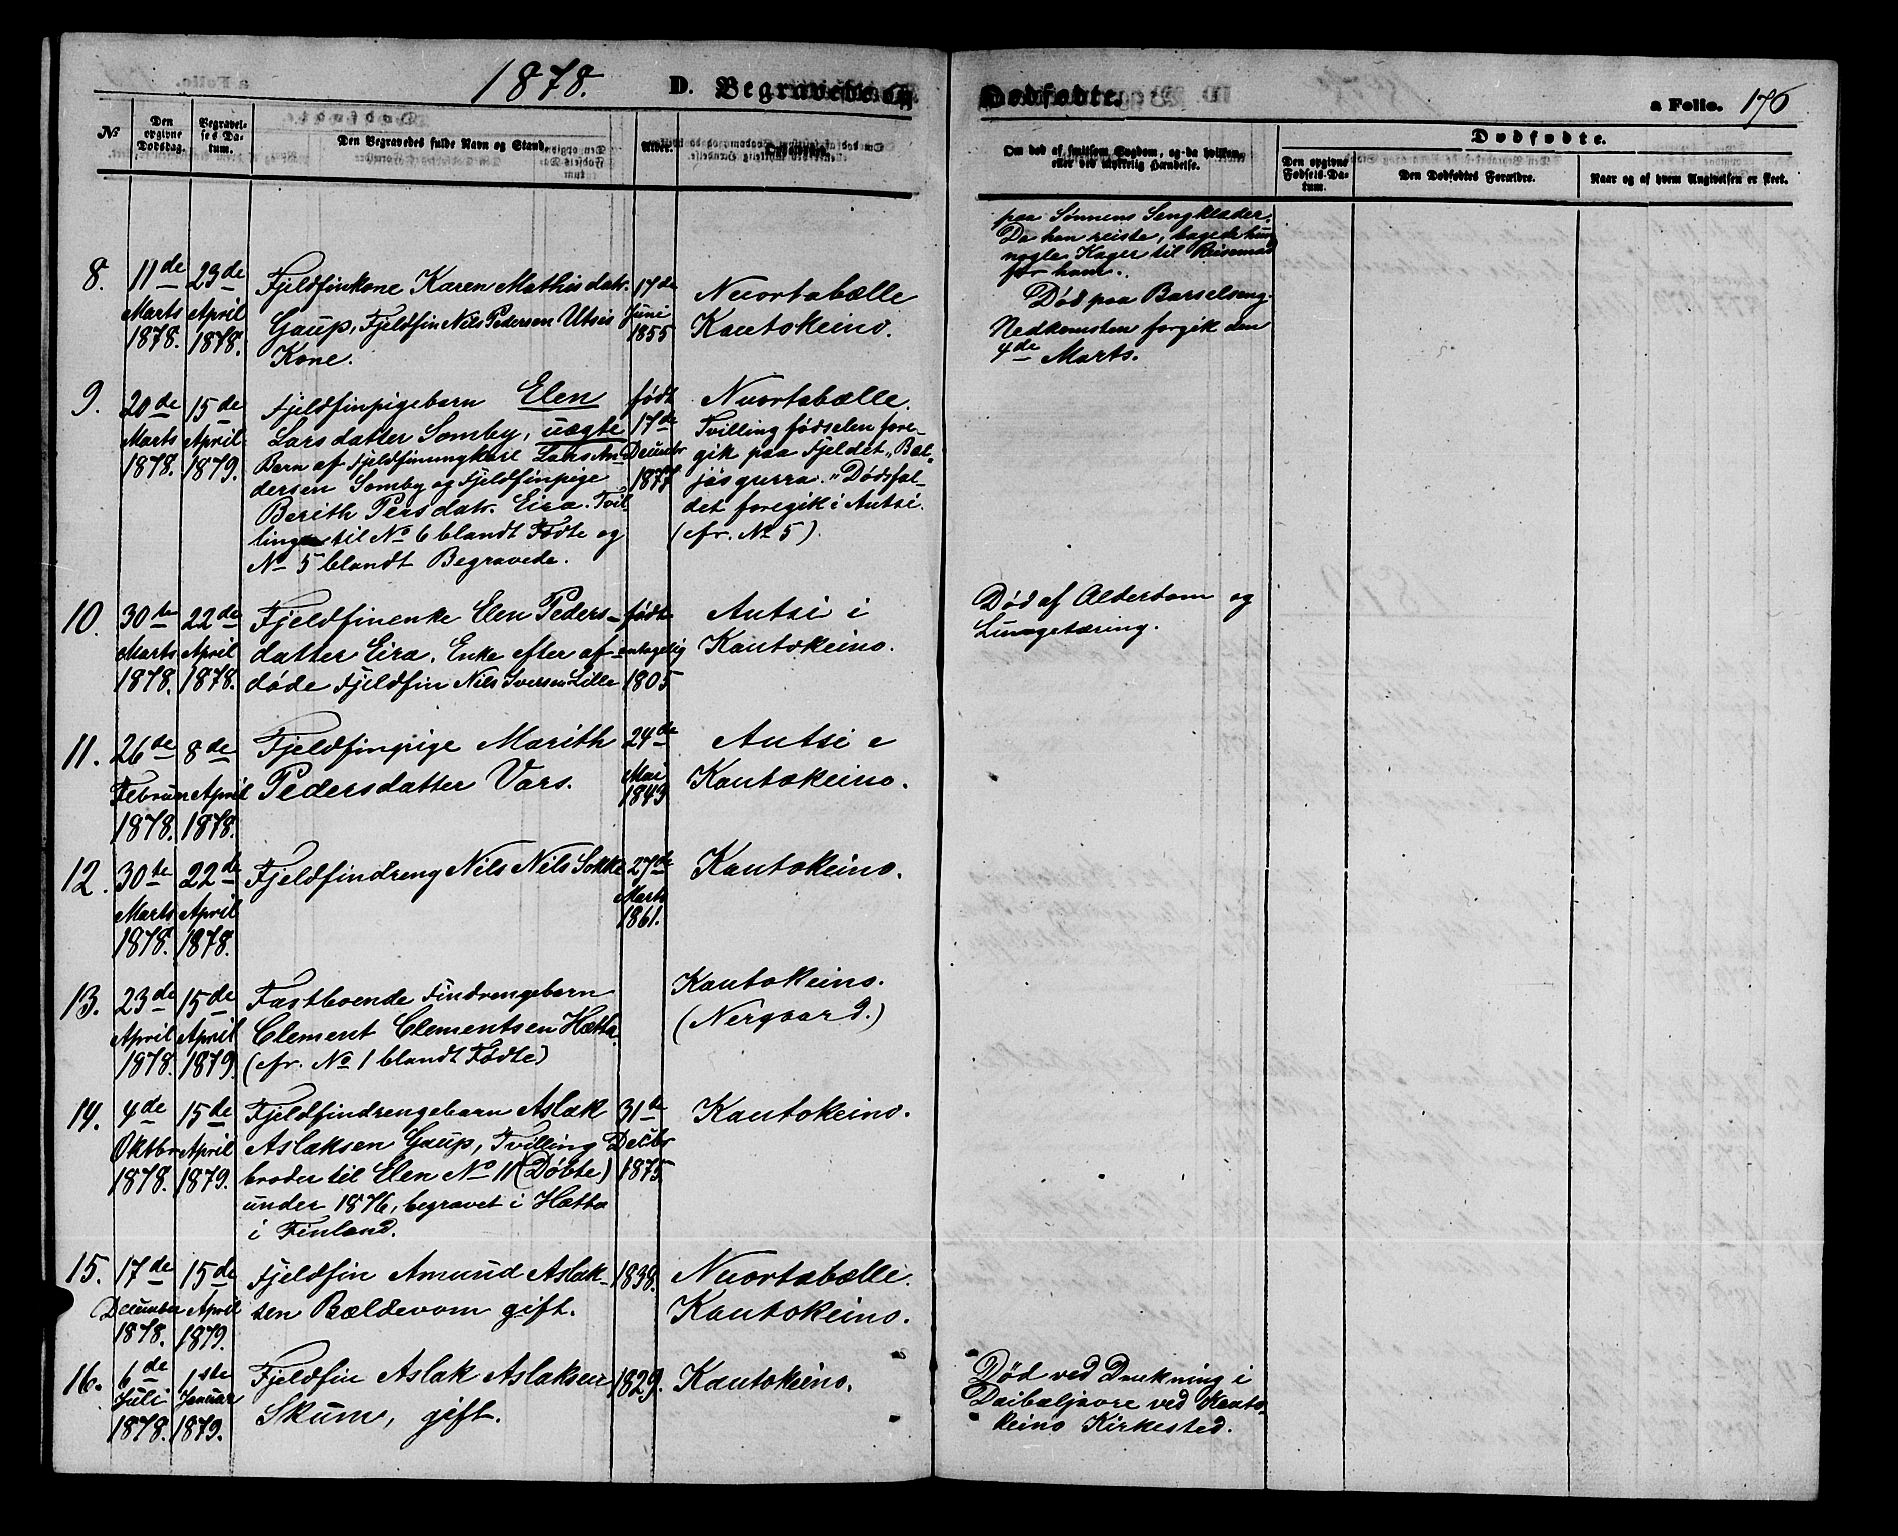 1878. D. Begravede og Dødfødte. a Folio. 176
No
Den opgivne Dødsdag.
Begravelses Datum.
Den Begravedes fulde Navn og Stand.
Alder.
Om død af smitsom Sygdom, og da hvilken,
eller ved ulykkelig Hændelse.
Dødfødte.
Den opgivne Fødsels-Datum.
Den Dødfødtes Forældre.
Naar og af hvem Angivelsen er skeet.
paa Sønnens Sengklæder.
Da han reiste, bagede hun
nogle Kager til Reisemad
for ham.
8. 11de Marts 1878. 23de April 1878.
Fjeldfinkone Karen Mathisdatr.
Gaup, Fjeldfin Nils Pedersen Utsis
Kone.
17de Juni 1855
Nuortabælle
Kautokeino.
Død paa Barselseng.
Nedkomsten forgik den
4de Marts.
9. 20de Marts 1878. 15de April 1879.
Fjeldfinpigebarn Elen
Larsdatter Somby, uægte
Barn af Fjeldfinungkarl Lars An-
dersen Somby og Fjeldfinpige
Berith Persdatr. Eira. Tvil-
linge til No 6 blandt Fødte og
No 5 blandt Begravede.
født 17de Decembr 1877
Nuortabælle.
Tvillingfødselen fore-
gik paa Fjeldet „Bæl-
jásgurra." Dødsfal-
det foregik i Autsi.
(cfr. No 5).
10. 30te Marts 1878. 22de April 1878.
Fjeldfinenke Elen Peders-
datter Eira. Enke efter af-
døde Fjeldfin Nils Iversen Lille
født antagelig 1805
Autsi i
Kautokeino.
Død af Alderdom og
Lungetæring.
11. 26de Februar 1878. 8de April 1878.
Fjeldfinpige Marith
Pedersdatter Vars.
24de Mai 1843
Autsi i
Kautokeino.
12. 30te Marts 1878. 22de April 1878.
Fjeldfindreng Nils Nils Sokke
27de Marts 1861.
Kautokeino.
13. 23de April 1878. 15de April 1879.
Fastboende Findrengebarn
Clement Clementsen Hætta.
(cfr. No 1 blandt Fødte)
Kautokeino.
(Nergaard.)
14. 4de Oktbr 1878. 15de April 1879.
Fjeldfindrengebarn Aslak
Aslaksen Gaup, Tvilling
broder til Elen No 11 (Døbte)
under 1876, begravet i Hætta
i Finland.
31te Decbr 1875
Kautokeino.
15. 17de December 1878. 15de April 1879.
Fjeldfin Amund Aslak-
sen Bældevom gift.
1838.
Nuortabælle.
Kautokeino.
16. 6de Juli 1878. 1ste Januar 1879.
Fjeldfin Aslak Aslaksen
Skum, gift.
1829.
Kautokeino.
Død ved Drukning i
Daibæljavre ved Kauto-
keino Kirkested.